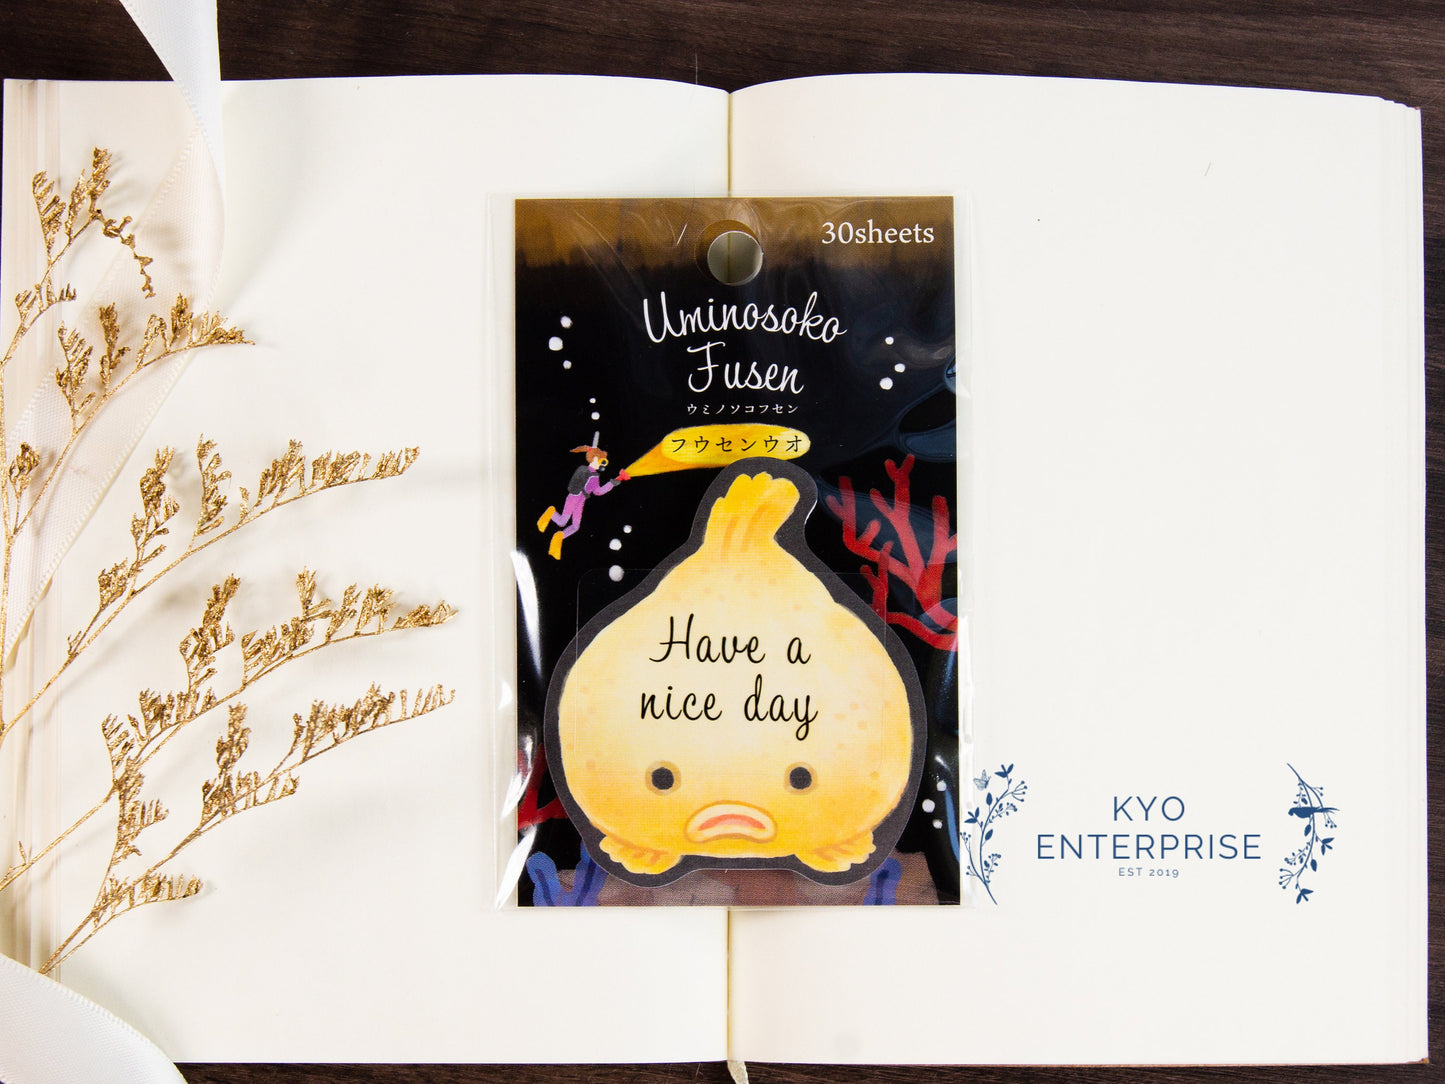 30sheets
Uminosoko
Fusen
ウミノソコフセン
フウセンウオ
Have a
nice day
KYO
ENTERPRISE
EST 2019